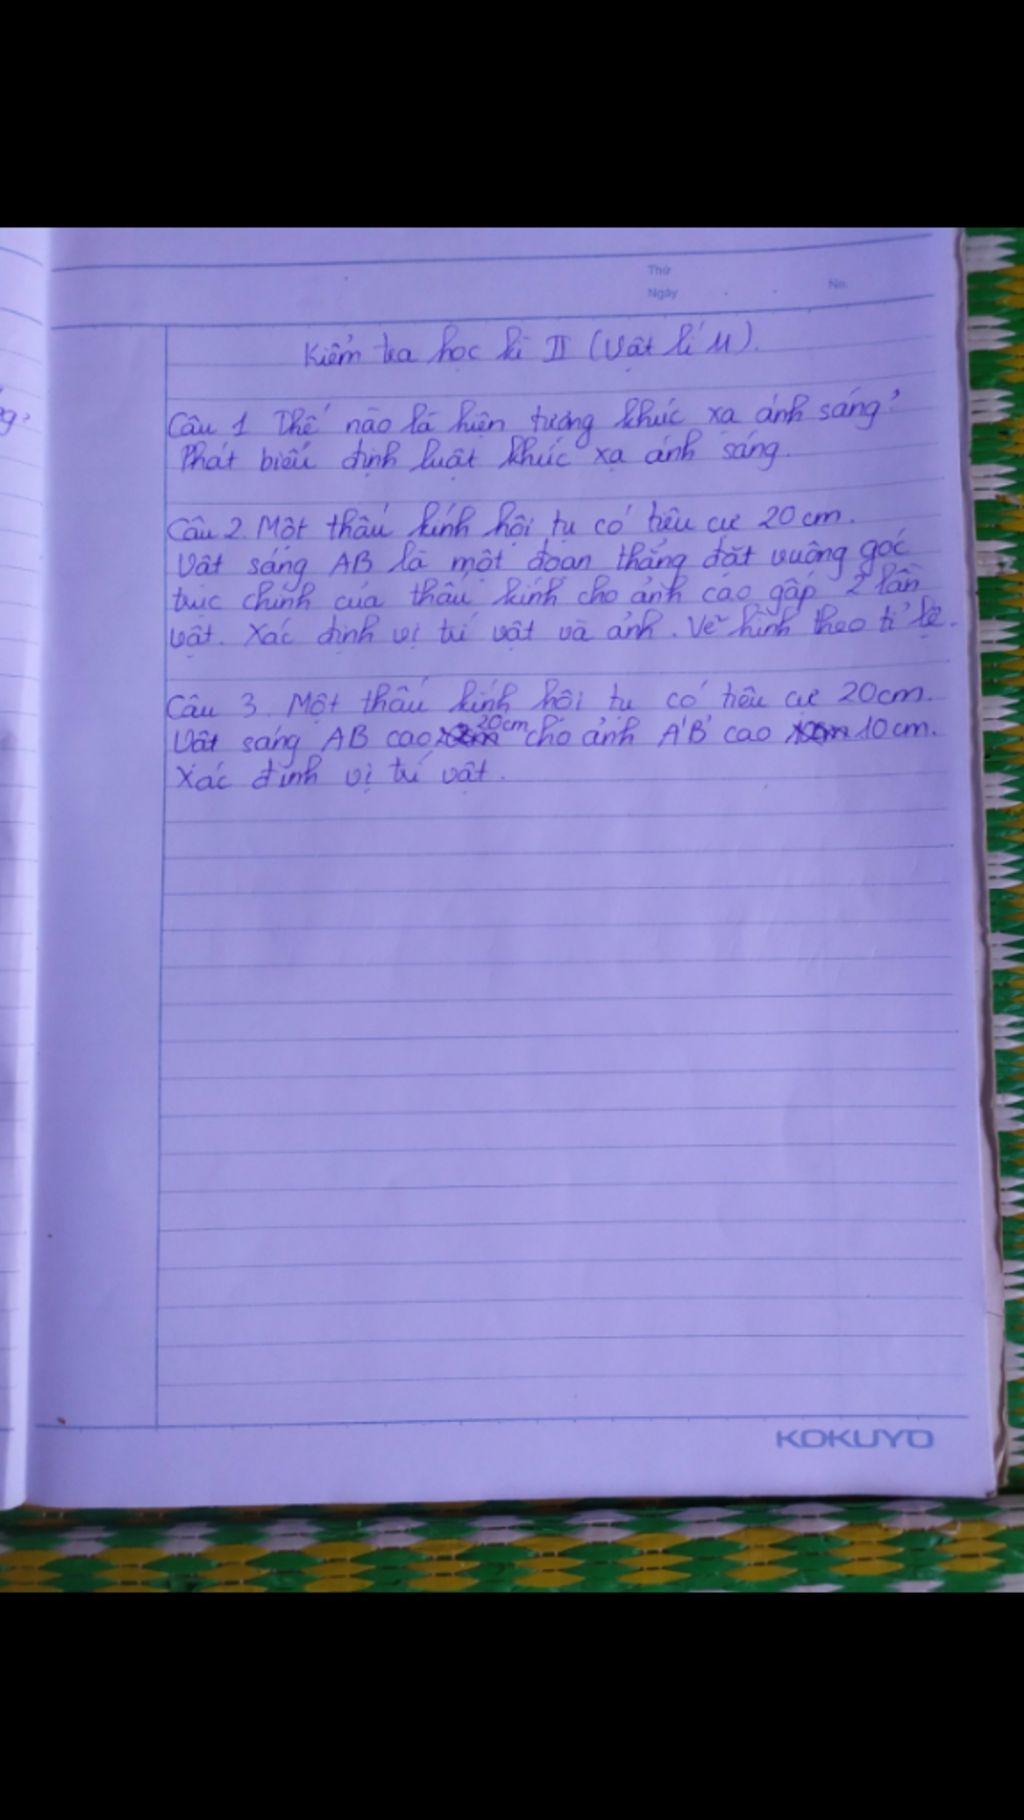 Thứ
Ngày
No.
Kiểm tra học kì II (Vật lí 11).
Câu 1 Thế nào là hiện tượng khúc xạ ánh sáng?
Phát biểu định luật khúc xạ ánh sáng.
Câu 2. Một thấu kính hội tụ có tiêu cự 20 cm.
Vật sáng AB là một đoạn thẳng đặt vuông góc
trục chính của thấu kính cho ảnh cao gấp 2 lần
vật. Xác định vị trí vật và ảnh. Vẽ hình theo tỉ lệ.
Câu 3. Một thấu kính hội tụ có tiêu cự 20cm.
Vật sáng AB cao 20cm cho ảnh A'B' cao 10cm.
Xác định vị trí vật.
KOKUYO